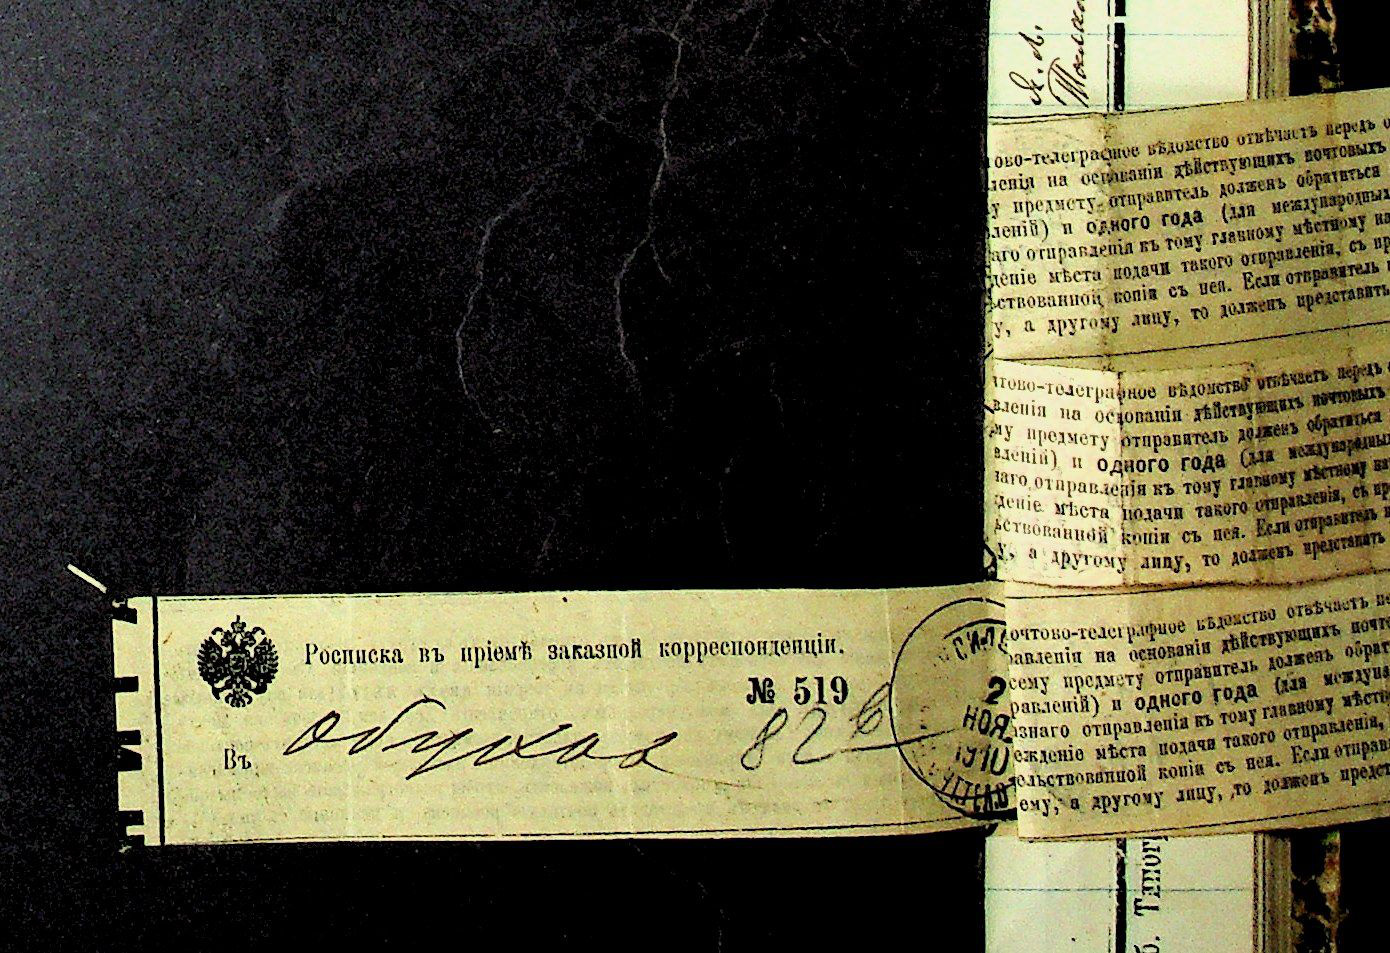 Я. А.
ово-телеграфное вѣдомство отвѣчаетъ передъ
ленія на основаніи дѣйствующихъ почтовыхъ
у предмету отправитель долженъ обратиться
леній) и одного года (для международныхъ
аго отправленія къ тому главному мѣстному на
деніе мѣста подачи такого отправленія, съ пр
ствованной копіи съ нея. Если отправитель
у, а другому лицу, то долженъ представить
тово-телеграфное вѣдомство отвѣчаетъ передъ
вленія на основаніи дѣйствующихъ почтовыхъ
му предмету отправитель долженъ обратиться
вленій) и одного года (для международныхъ
наго отправленія къ тому главному мѣстному на
деніе мѣста подачи такого отправленія, съ пр
ьствованной копіи съ нея. Если отправитель
у, а другому лицу, то долженъ представить
очтово-телеграфное вѣдомство отвѣчаетъ пе
равленія на основаніи дѣйствующихъ почто
сему предмету отправитель долженъ обрат
равленій) и одного года (для междуна
азнаго отправленія къ тому главному мѣстн
еждение мѣста подачи такого отправленія,
ельствованной копіи съ нея. Если отправи
ему, а другому лицу, то долженъ предст
Росписка въ пріемѣ заказной корреспонденціи.
№ 519
Въ
82
2
НОЯ
1910
б. Типогр